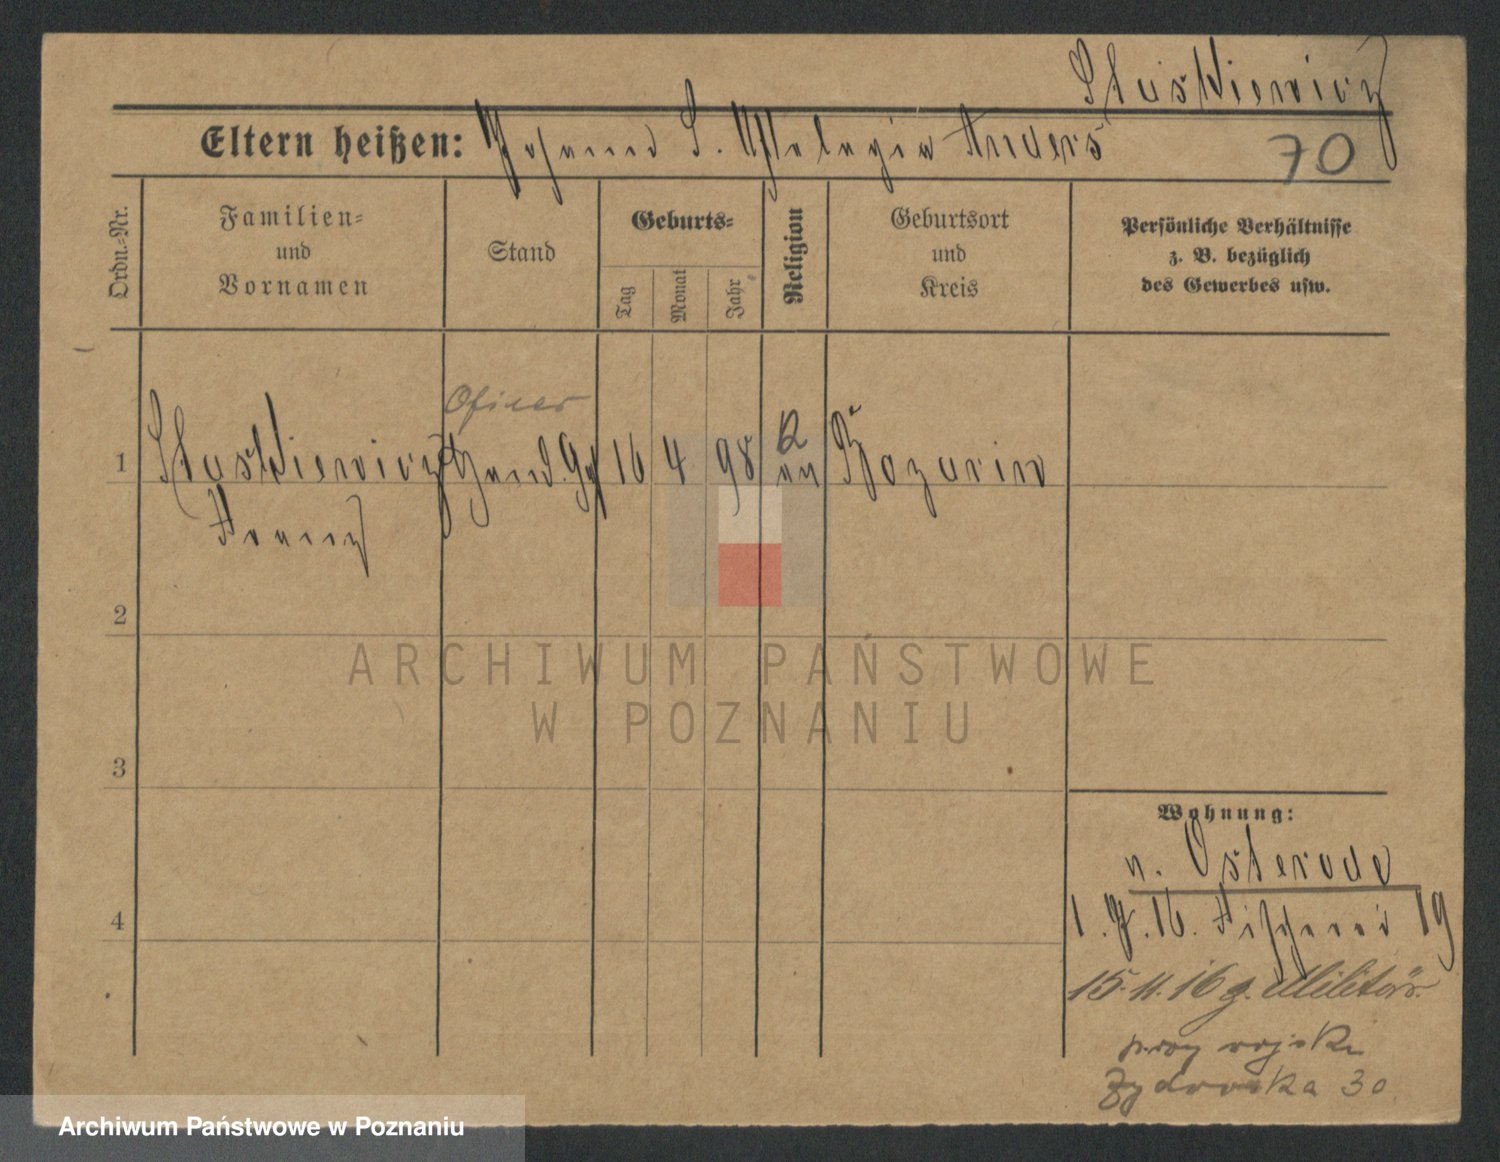 Stuskiewicz
Eltern heißen: Johann S. Pelagia Anders
70
Ordn.-Nr.
Familien-
und
Vornamen
Stand
Geburts-
Tag
Monat
Jahr
Religion
Geburtsort
und
Kreis
Persönliche Verhältnisse
z. B. bezüglich
des Gewerbes usw.
Oficer
1 Stuskiewicz 16 4 98 K
Franz
2
3
4
Wohnung:
n. Osterode
1. 16. Fischerei 19
15.11.16 z. Militär.
przy wojsku
Żydowska 30.
ARCHIWUM PAŃSTWOWE
W POZNANIU
Archiwum Państwowe w Poznaniu